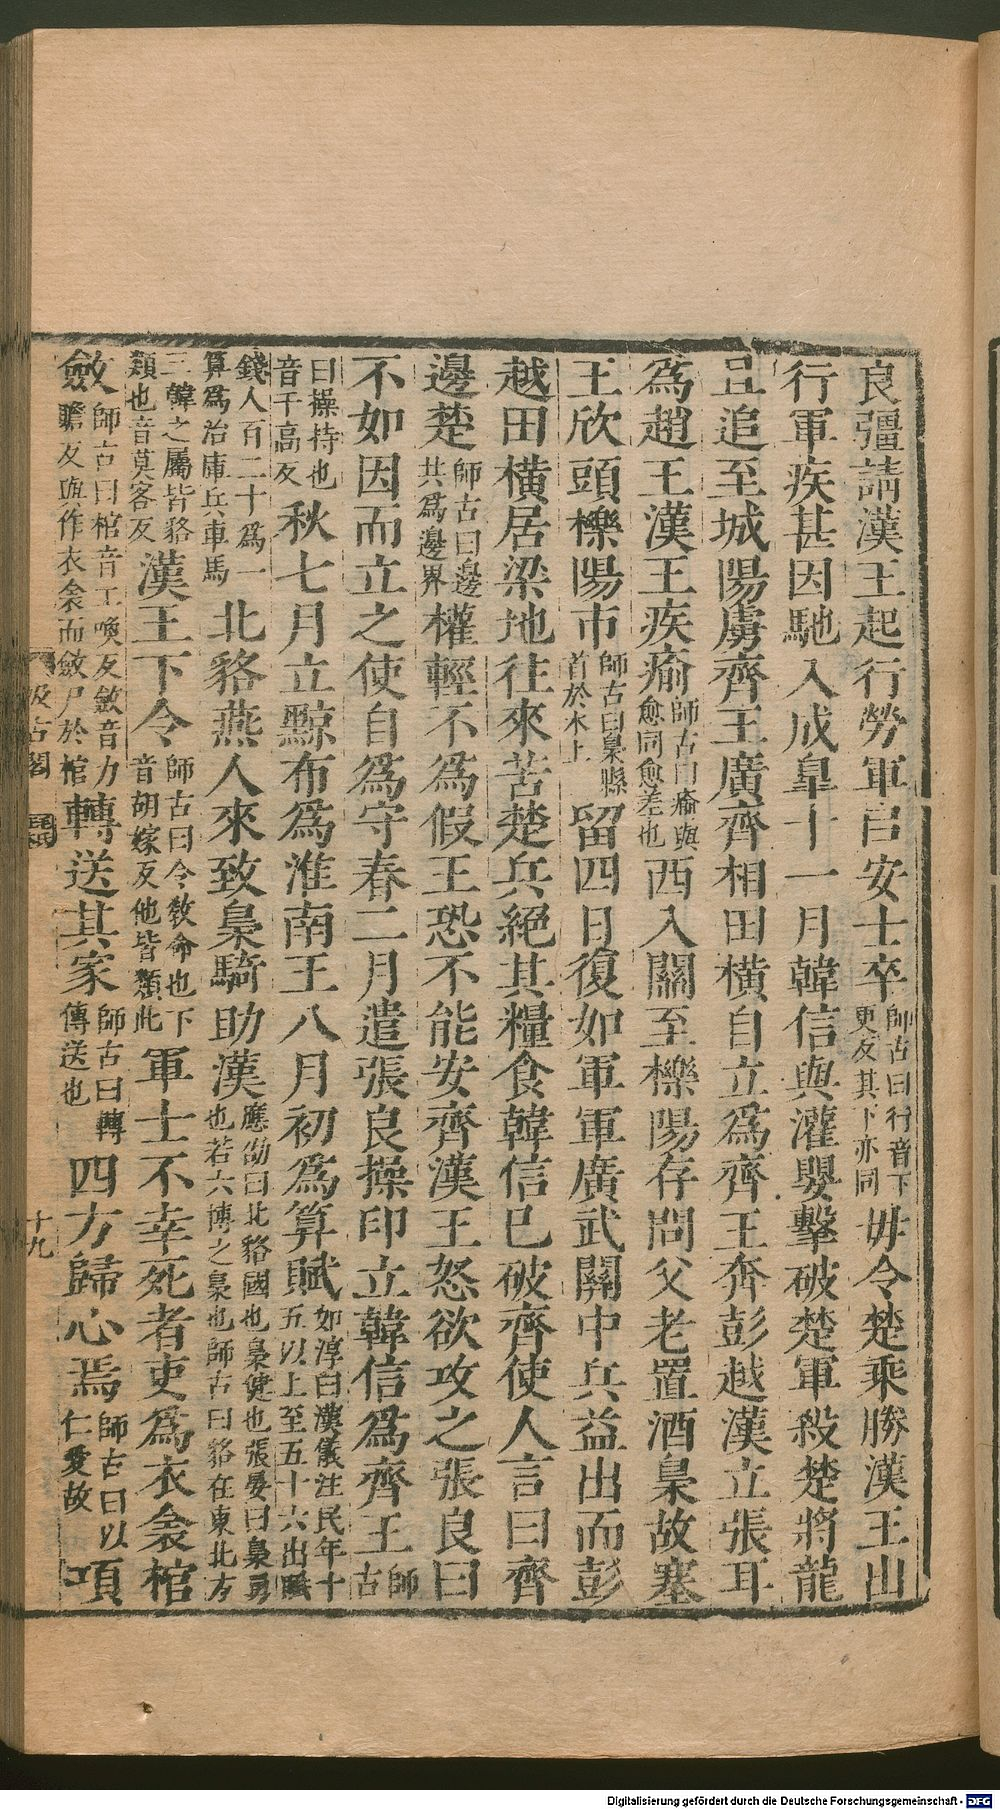 良彊請漢王起行勞軍㠯安士卒師古曰行音下更反其下亦同毋令楚乘勝漢王出
行軍疾甚因馳入成皐十一月韓信與灌嬰擊破楚軍殺楚將龍
且追至城陽虜齊王廣齊相田橫自立爲齊王奔彭越漢立張耳
爲趙王漢王疾瘉師古曰瘉與愈同愈差也西入關至櫟陽存問父老置酒梟故塞
王欣頭櫟陽市師古曰梟縣首於木上留四日復如軍軍廣武關中兵益出而彭
越田橫居梁地往來苦楚兵絕其糧食韓信已破齊使人言曰齊
邊楚師古曰邊共爲邊界權輕不爲假王恐不能安齊漢王怒欲攻之張良曰
不如因而立之使自爲守春二月遣張良操印立韓信爲齊王師古
曰操持也音千高反秋七月立黥布爲淮南王八月初爲算賦如淳曰漢儀注民年十五以上至五十六出賦
錢人百二十爲一算爲治庫兵車馬北貉燕人來致梟騎助漢應劭曰北貉國也梟健也張晏曰梟勇也若六博之梟也師古曰貉在東北方
三韓之屬皆貉類也音莫客反漢王下令師古曰令敎命也下音胡嫁反他皆類此軍士不幸死者吏爲衣衾棺
斂師古曰棺音工喚反斂音力贍反與作衣衾而斂尸於棺轉送其家師古曰轉傳送也四方歸心焉師古曰以仁愛故項
汲古閣
十九
Digitalisierung gefördert durch die Deutsche Forschungsgemeinschaft - DFG